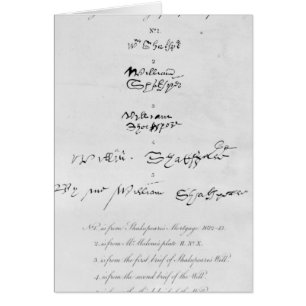 Nº 1.
Wm Shakspe
2
William
Shakspere
3
William
Shakspere
4
Willm Shakspere
5
By me William Shakspeare
Nº 1. is from Shakspeare's Mortgage 1612-13.
2. is from Mr. Malone's plate II. Nº X.
3. is from the first brief of Shakspeare's Will.
4. is from the second brief of the Will.